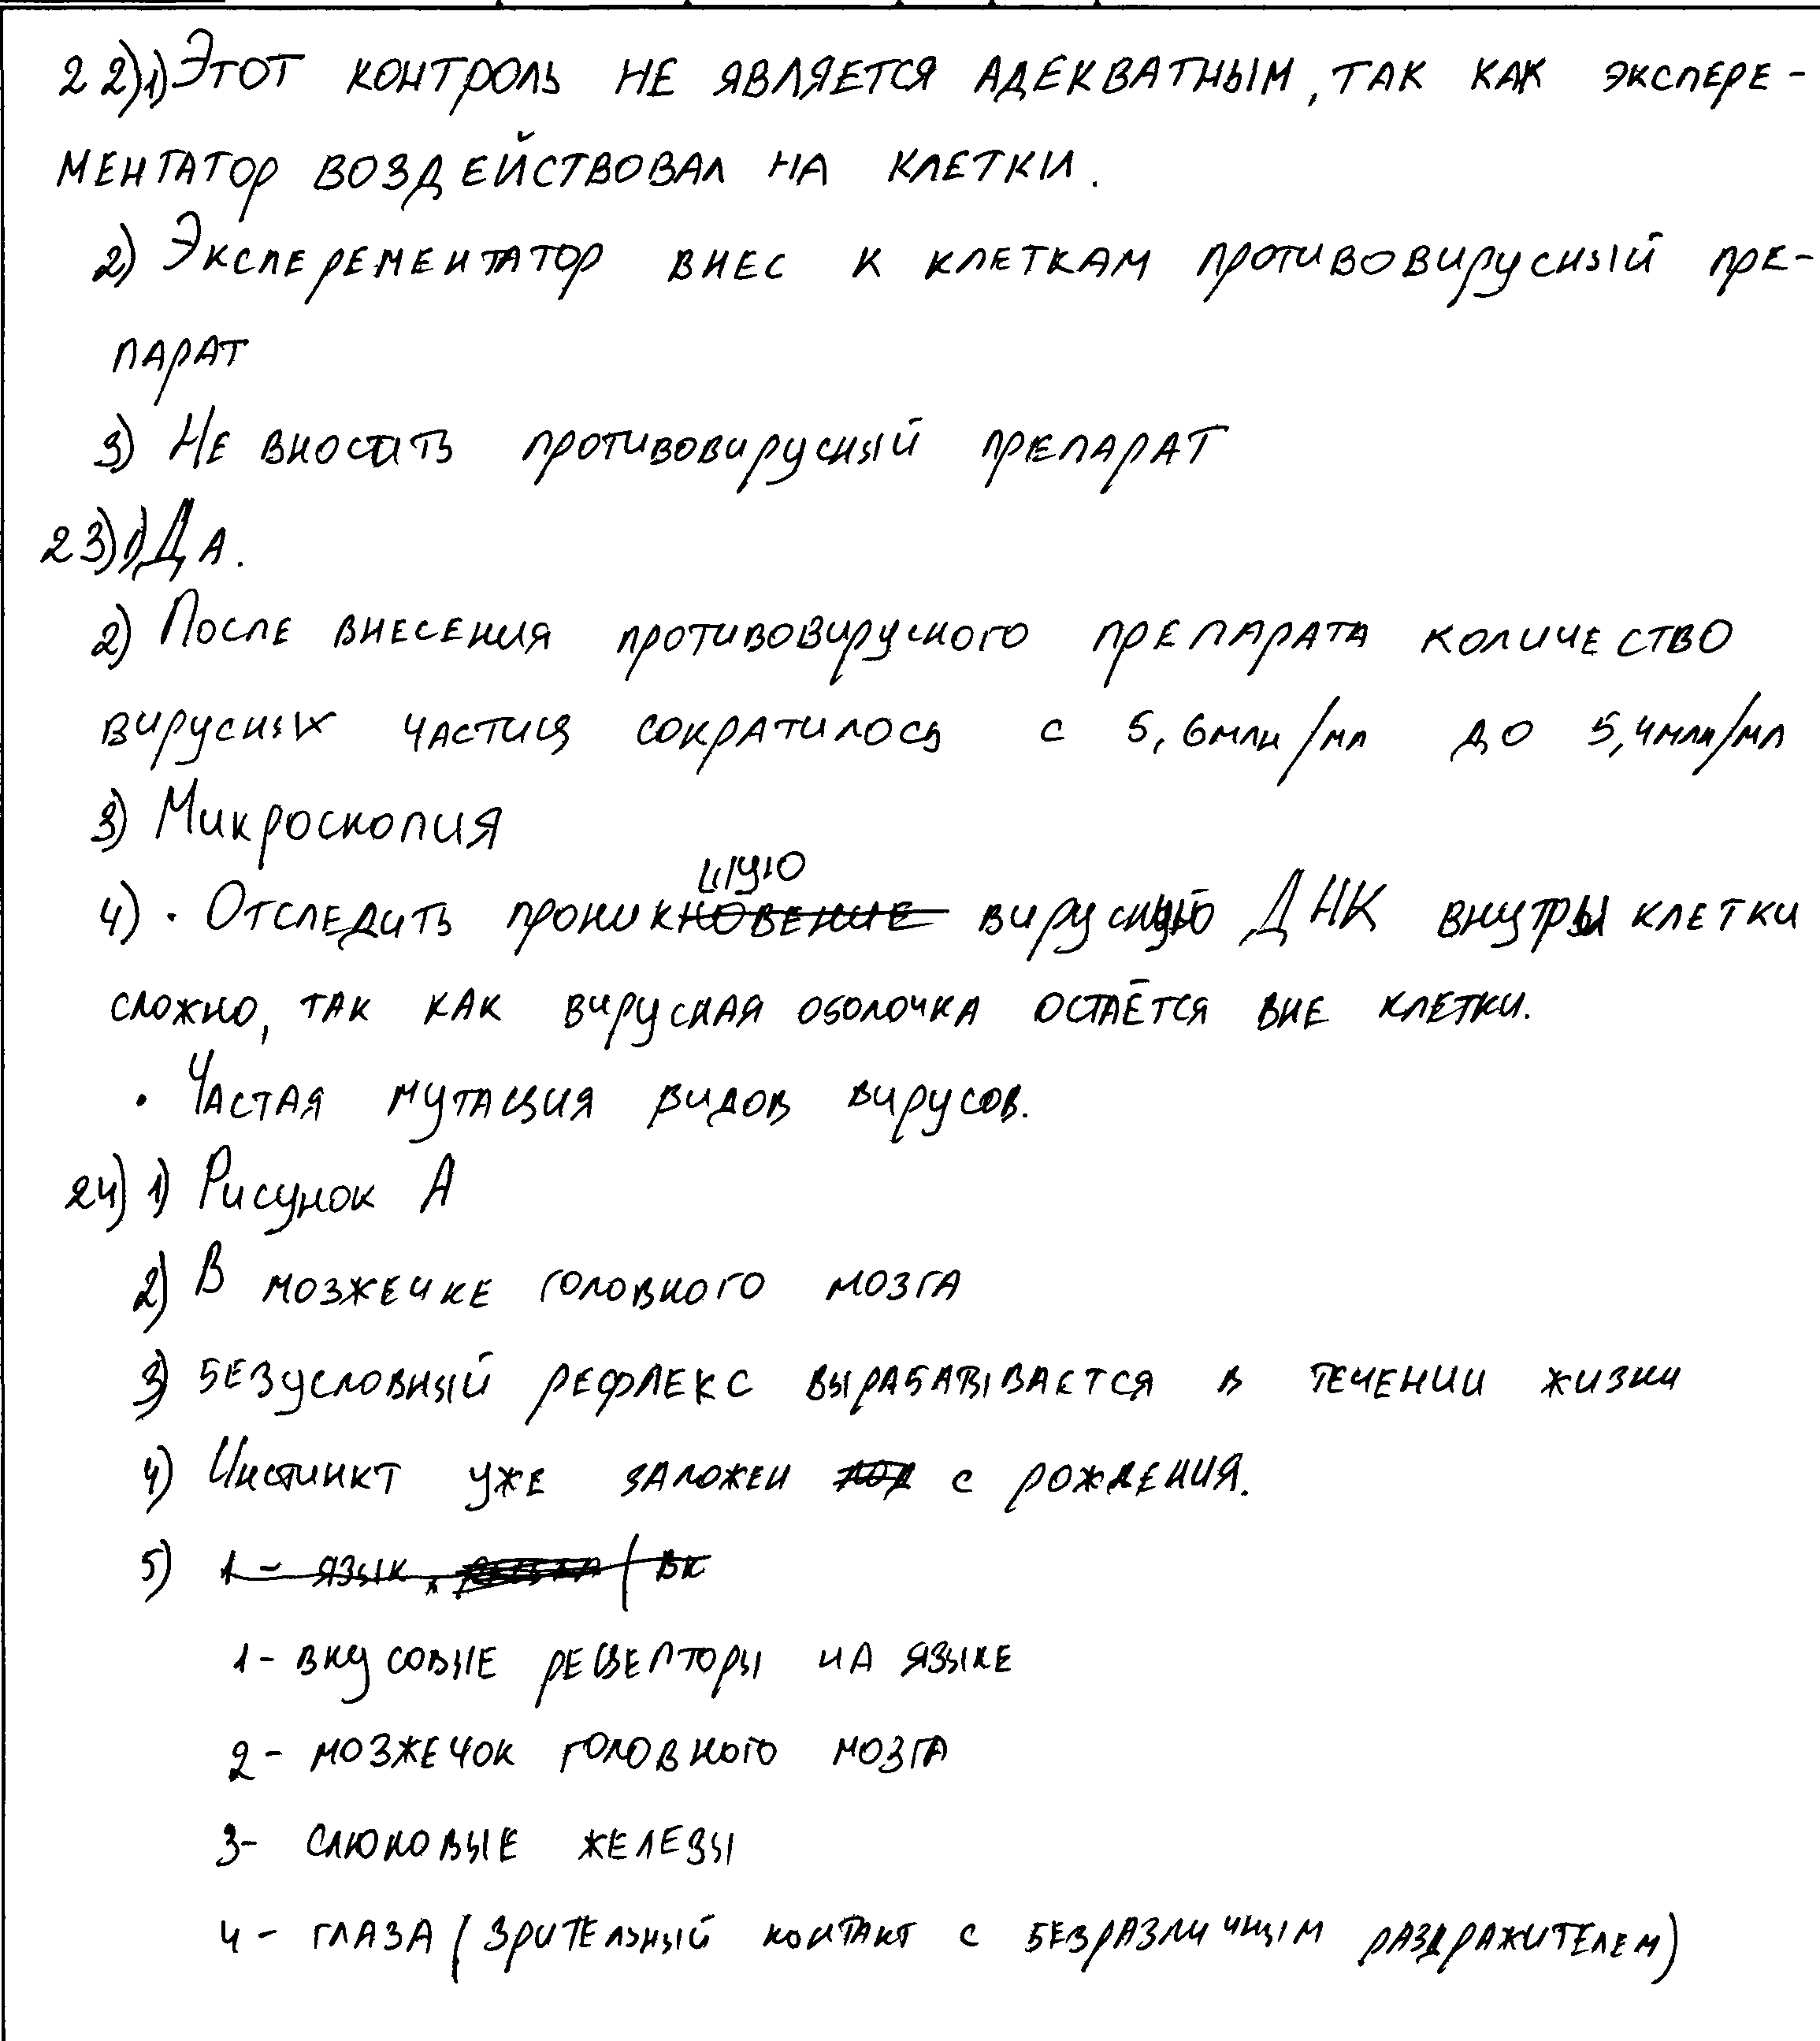 22)1) Этот контроль не является адекватным, так как экспере-
ментатор воздействовал на клетки.
2) Эксперементатор внес к клеткам противовирусный пре-
парат
3) Не вносить противовирусный препарат
23)1) Да.
2) После внесения противовирусного препарата количество
вирусных частиц сократилось с 5,6млн/мл до 5,4млн/мл
3) Микроскопия
шую
4) · Отследить проникновение вирусную ДНК внутрь клетки
сложно, так как вирусная оболочка остаётся вне клетки.
· Частая мутация видов вирусов.
24) 1) Рисунок А
2) В мозжечке головного мозга
3) Безусловный рефлекс вырабатывается в течении жизни
4) Инстинкт уже заложен с рождения.
5) 1 - язык, (вк
1 - вкусовые рецепторы на языке
2 - мозжечок головного мозга
3 - слюновые железы
4 - глаза (зрительный контакт с безразличным раздражителем)